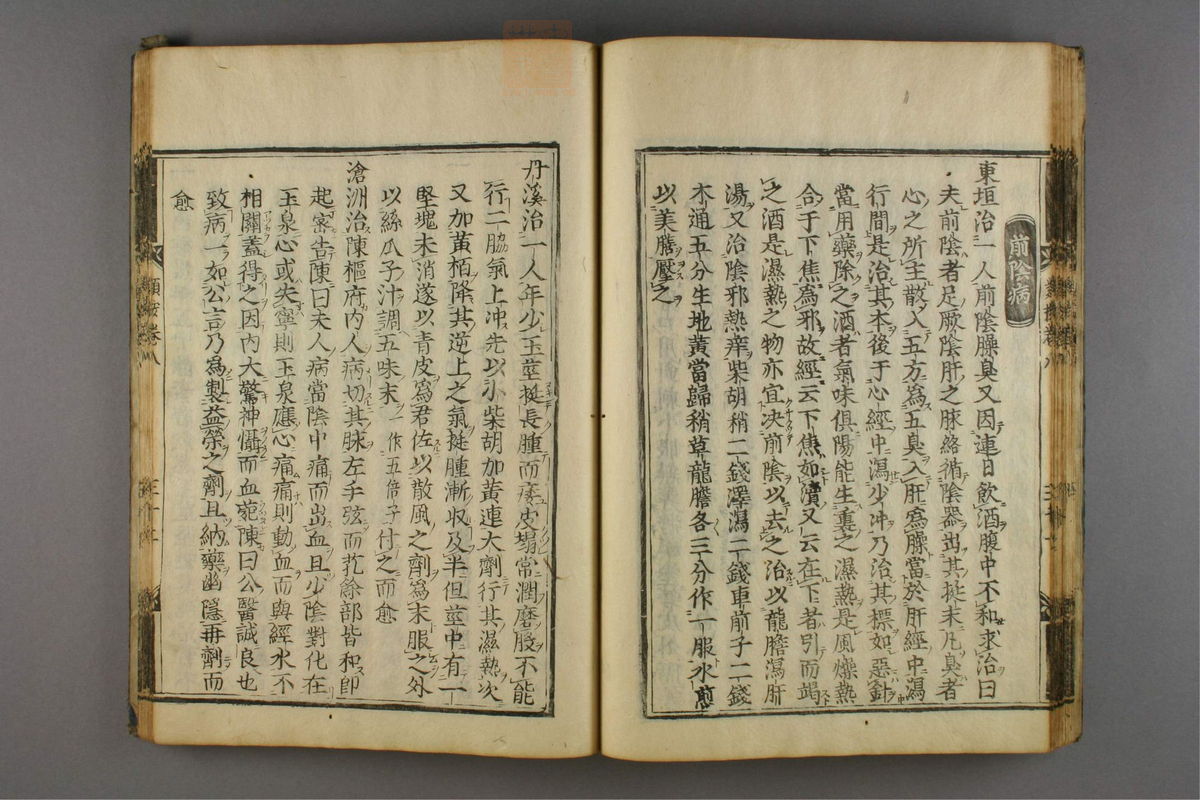 前陰病
東垣治一人前陰臊臭又因連日飲酒腹中不和求治曰
夫前陰者足厥陰肝之脉絡循陰器出其挺末凡臭者
心之所主散入五方為五臭入肝為臊當於肝經中瀉
行間是治其本後于心經中瀉少冲乃治其標如惡針
當用藥除之酒者氣味俱陽能生裏之濕熱是風燥熱
合于下焦為邪故經云下焦如瀆又云在下者引而竭
之酒是濕熱之物亦宜决前陰以去之治以龍膽瀉肝
湯又治陰邪熱痒柴胡稍二錢澤瀉二錢車前子二錢
木通五分生地黃當歸稍草龍膽各三分作一服水煎
以美膳壓之
丹溪治一人年少玉莖挺長腫而痿皮塌常潤磨股不能
行二脇氣上冲先以小柴胡加黃連大劑行其濕熱次
又加黃栢降其逆上之氣挺腫漸収及半但莖中有一
堅塊未消遂以青皮為君佐以散風之劑為末服之外
以絲瓜子汁調五味末作五倍子付之而愈
滄洲治陳樞府内人病切其脉左手弦而芤餘部皆和即
起密告陳曰夫人病當陰中痛而出血且少陰對化在
玉泉心或失寧則玉泉應心痛痛則動血而與經水不
相關蓋得之因内大驚神懾而血菀陳曰公醫誠良也
致病一如公言乃為製益榮之劑且納藥幽隱再劑而
愈